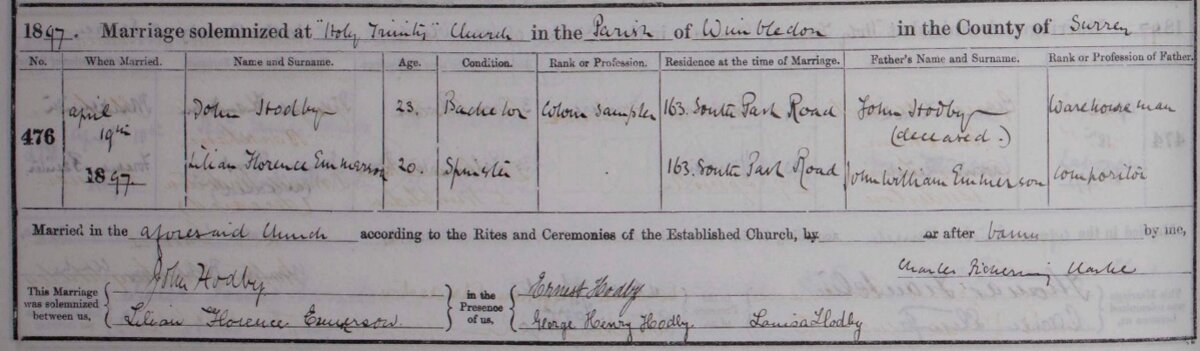 1897. Marriage solemnized at "Holy Trinity" Church in the Parish of Wimbledon in the County of Surrey
No. When Married. Name and Surname. Age. Condition. Rank or Profession. Residence at the time of Marriage. Father's Name and Surname. Rank or Profession of Father.
476 April 19th 1897. John Hodby 23. Bachelor Colour Sampler 163. South Park Road John Hodby (deceased.) Warehouseman
Lilian Florence Emmerson 20. Spinster 163. South Park Road John William Emmerson Compositor
Married in the aforesaid Church according to the Rites and Ceremonies of the Established Church, by or after banns by me,
Charles Pickering Clarke
This Marriage was solemnized between us, John Hodby in the Presence of us, Ernest Hodby
Lilian Florence Emmerson. George Henry Hodby Louisa Hodby